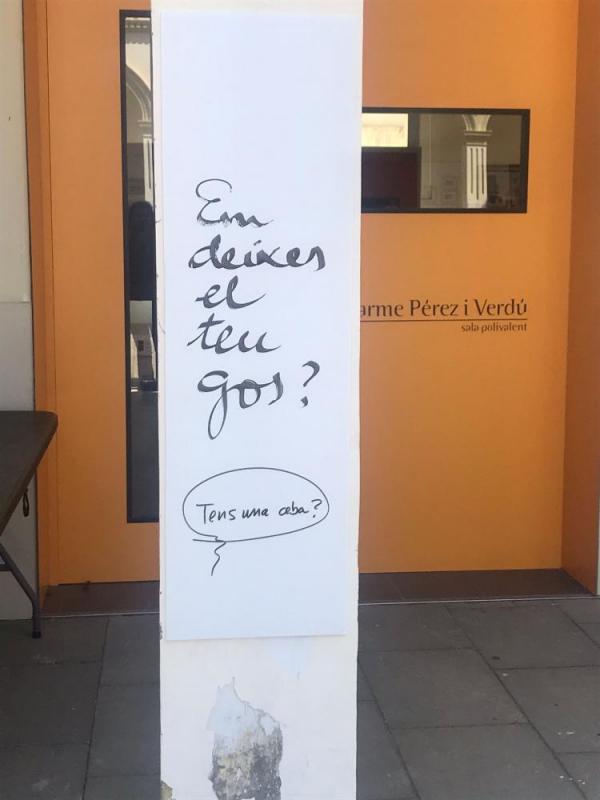 Em
deixes
el
teu
gos?
Tens una ceba?
arme Pérez i Verdú
sala polivalent